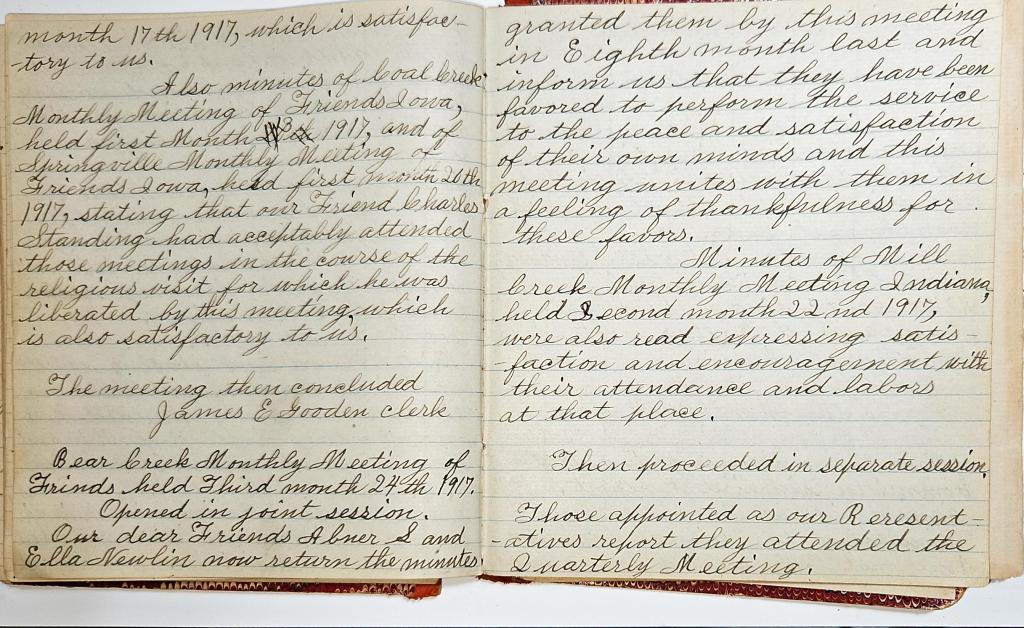 month 17th 1917, which is satisfac-
-tory to us.
Also minutes of Coal Creek
Monthly Meeting of Friends Iowa,
held first Month 1917, and of
Springville Monthly Meeting of
Friends Iowa, held first month 20th
1917, stating that our Friend Charles
Standing had acceptably attended
those meetings in the course of the
religious visit for which he was
liberated by this meeting, which
is also satisfactory to us.
The meeting then concluded
James E Gooden clerk
Bear Creek Monthly Meeting of
Frinds held Third month 24th 1917.
Opened in joint session.
Our dear Friends Abner S and
Ella Newlin now return the minutes
granted them by this meeting
in Eighth month last and
inform us that they have been
favored to perform the service
to the peace and satisfaction
of their own minds and this
meeting unites with them in
a feeling of thankfulness for
these favors.
Minutes of Mill
Creek Monthly Meeting Indiana,
held Second month 22nd 1917,
were also read expressing satis-
-faction and encouragement with
their attendance and labors
at that place.
Then proceeded in separate session.
Those appointed as our Reresent-
-atives report they attended the
Quarterly Meeting.